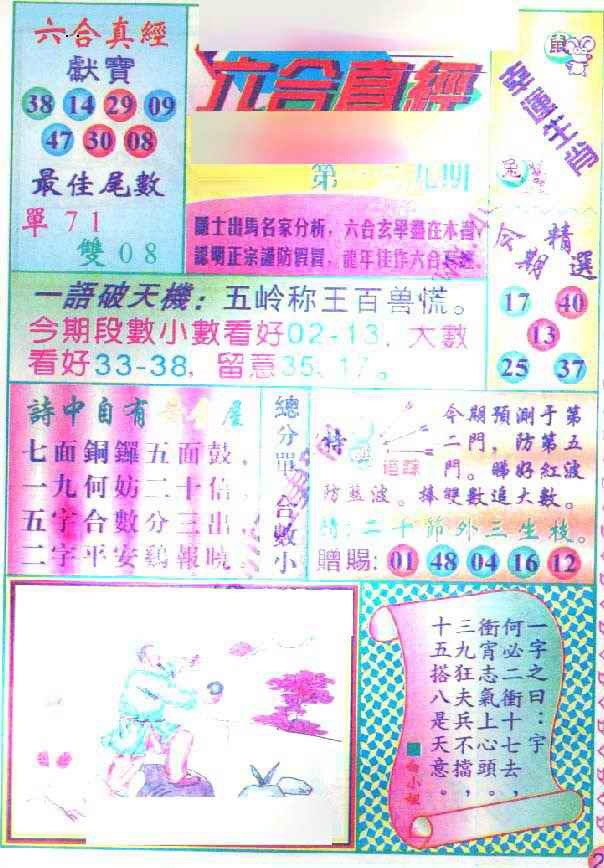 六合真經
獻寶
38 14 29 09
47 30 08
最佳尾數
單 71
雙 08
六合真經
第
九期
隱士出馬名家分析，六合玄學盡在本
認明正宗謹防假冒，龍年佳作六合真經
鼠
幸運生肖
兔
今期
精選
17 40
13
25 37
一語破天機：五岭称王百兽慌。
今期段數小數看好02-13，大數
看好33-38，留意35、17。
詩中自有
七面銅鑼五面鼓，
一九何妨二十倍，
五字合數分三出，
二字平安鷄報曉。
總分單
合數小
特
追踪
今期預測于第
二門，防第五
門。睇好紅波
防藍波。捧雙數追大數。
詩：二十節外三生枝。
贈賜：01 48 04 16 12
一字之曰：宇
何必二衝十七去，
衝宵志氣上心頭。
三九狂夫兵不擋，
十五搭八是天意。